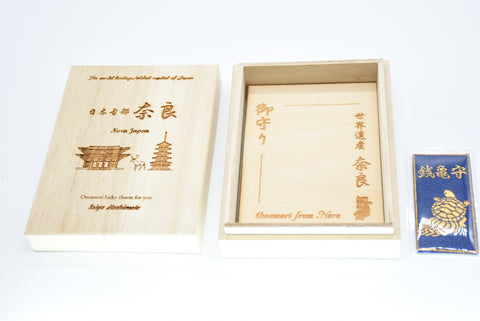 The world heritage oldest capital of Japan
日本古都 奈良
Nara Japan
Omamori lucky charm for you
Seiya Hashimoto
世界遺産 奈良
御守り
Omamori from Nara
銭亀守